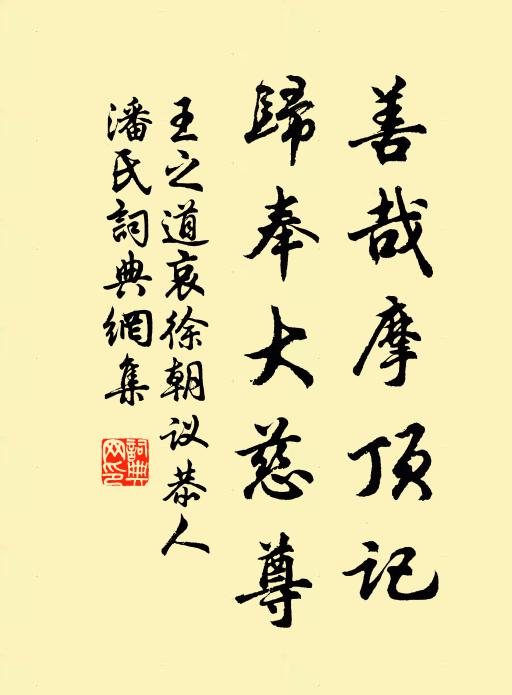 善哉摩顶记
歸奉大慈尊
王之道哀徐朝议恭人
潘氏詞典網集
詞典网印